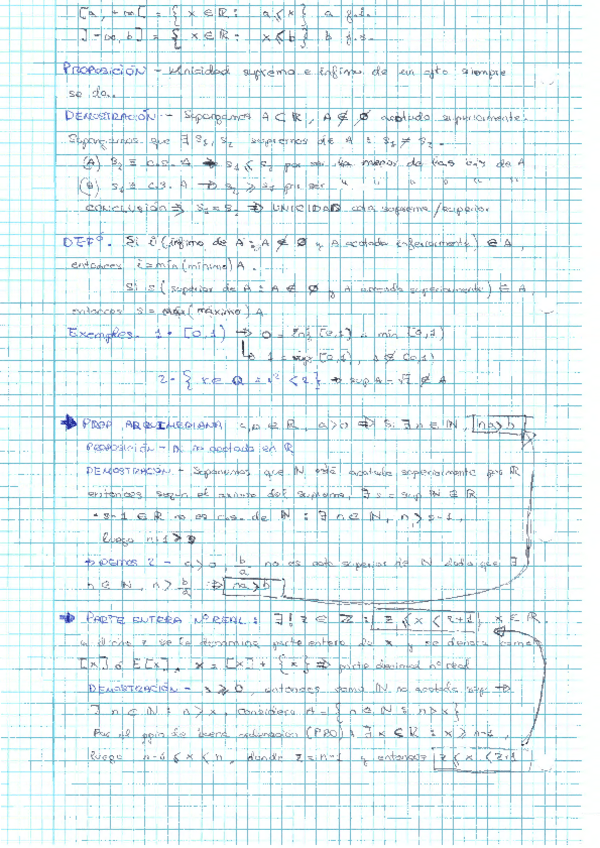 [a, +∞[ = { x ∈ ℝ : a ≤ x } a f.s.
]-∞, b] = { x ∈ ℝ : x ≤ b } b f.s.
PROPOSICIÓN - Unicidad supremo e ínfimo de un cjto siempre
se da.
DEMOSTRACIÓN - Supongamos A ⊂ ℝ, A ≠ ∅ acotado superiormente.
Supongamos que ∃ s₁, s₂ supremos de A : s₁ ≠ s₂.
(A) s₂ ≡ c.s. A → s₁ ≤ s₂ por menor de las c.s de A
(B) s₁ ≡ c.s. A → s₂ ≥ s₁ por ser " " " " "
CONCLUSIÓN → s₂ = s₁ ⇒ UNICIDAD cota suprema/superior
DEFº. Si i (ínfimo de A : A ≠ ∅ y A acotada inferiormente) ∈ A,
entonces i = min (mínimo) A.
Si s (superior de A : A ≠ ∅ y A acotada superiormente) ∈ A,
entonces s = máx (máximo) A
Exemples. 1. [0,1) → 0 = inf [0,1) = min [0,1)
↳ 1 = sup [0,1), 1 ∉ [0,1)
2 - { r ∈ Q : r² < 2 } ⇒ sup A = √2 ∉ A
→ PROP ARQUIMEDIANA a, b ∈ ℝ, a > 0 ⇒ Si ∃ n ∈ ℕ, na > b
PROPOSICIÓN - ℕ no acotado en ℝ
DEMOSTRACIÓN - Suponemos que ℕ está acotado superiormente por ℝ
entonces según el axioma del supremo, ∃ s = sup ℕ ∈ ℝ
s-1 ∈ ℝ no es c.s. de ℕ : ∃ n ∈ ℕ, n > s-1,
luego n+1 > s
2 - a > 0, b/a no es cota superior de ℕ dado que ∃
n ∈ ℕ, n > b/a ⇒ na > b
→ PARTE ENTERA Nº REAL : ∃! z ∈ ℤ : z ≤ x < z+1, x ∈ ℝ.
a dicho z se le denomina parte entera de x y se denota como
[x] ó E[x], x = [x] + {x} ⇒ parte decimal nº real
DEMOSTRACIÓN - x ≥ 0, entonces como ℕ no acotado sup. →
∃ n ∈ ℕ : n > x, considero A = { n ∈ ℕ : n > x }
Por el ppio de buena ordenación (PBO) : ∃ x ∈ ℝ : x ≥ n-1,
luego n-1 ≤ x < n, donde z = n-1 y entonces z ≤ x < z+1